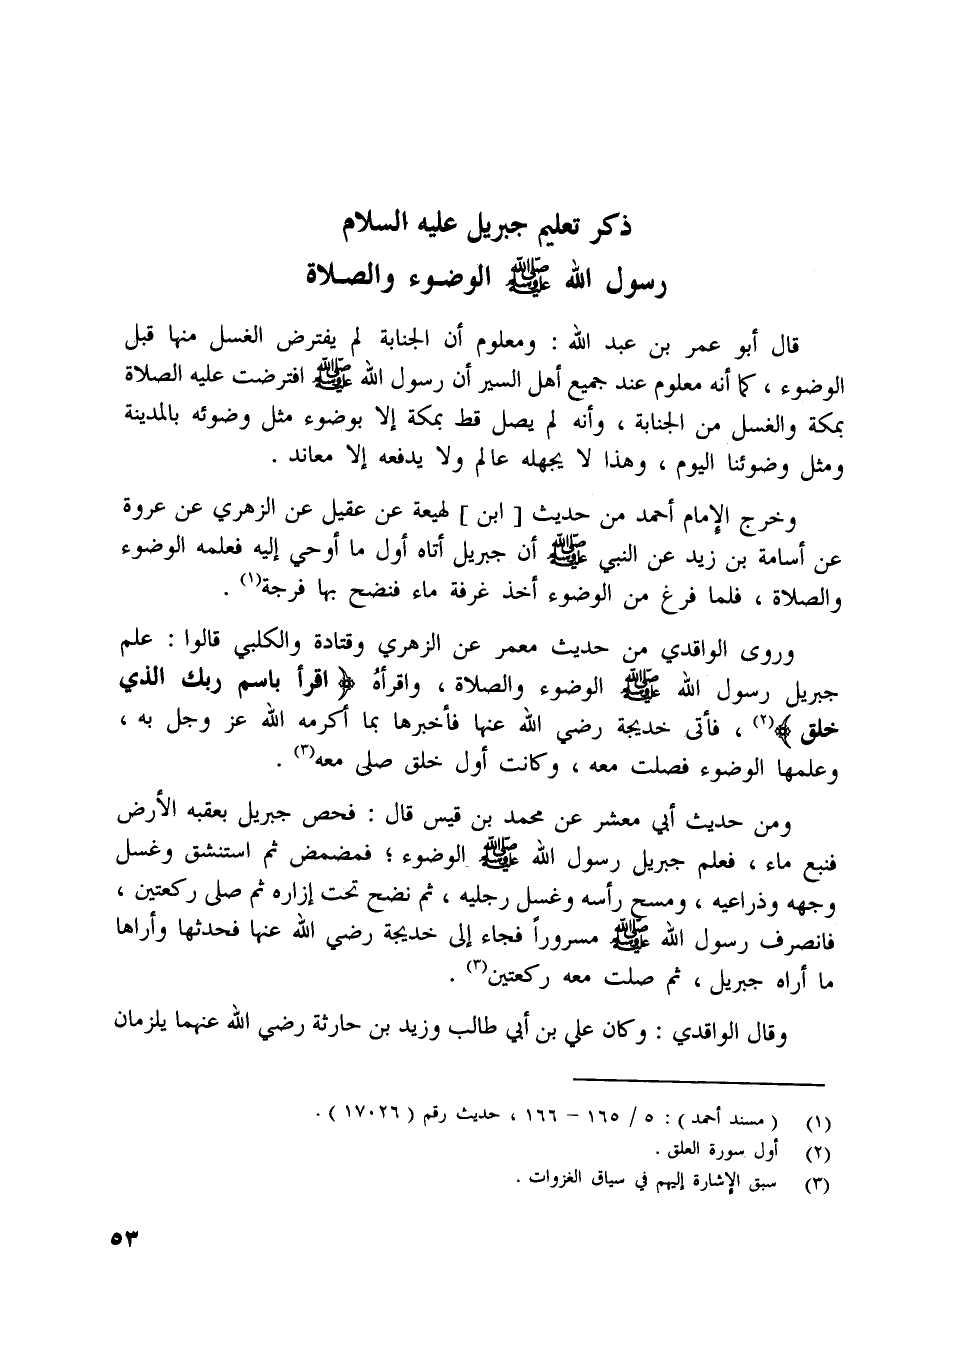 ذكر تعليم جبريل عليه السلام
رسول الله ﷺ الوضوء والصلاة
قال أبو عمر بن عبد الله : ومعلوم أن الجنابة لم يفترض الغسل منها قبل
الوضوء ، كما أنه معلوم عند جميع أهل السير أن رسول الله ﷺ افترضت عليه الصلاة
بمكة والغسل من الجنابة ، وأنه لم يصل قط بمكة إلا بوضوء مثل وضوئه بالمدينة
ومثل وضوئنا اليوم ، وهذا لا يجهله عالم ولا يدفعه إلا معاند .
وخرج الإمام أحمد من حديث [ ابن ] لهيعة عن عقيل عن الزهري عن عروة
عن أسامة بن زيد عن النبي ﷺ أن جبريل أتاه أول ما أوحي إليه فعلمه الوضوء
والصلاة ، فلما فرغ من الوضوء أخذ غرفة ماء فنضح بها فرجة(١) .
وروى الواقدي من حديث معمر عن الزهري وقتادة والكلبي قالوا : علم
جبريل رسول الله ﷺ الوضوء والصلاة ، واقرأهُ ﴿ اقرأ باسم ربك الذي
خلق ﴾(٢) ، فأتى خديجة رضي الله عنها فأخبرها بما أكرمه الله عز وجل به ،
وعلمها الوضوء فصلت معه ، وكانت أول خلق صلى معه(٣) .
ومن حديث أبي معشر عن محمد بن قيس قال : فحص جبريل بعقبه الأرض
فنبع ماء ، فعلم جبريل رسول الله ﷺ الوضوء ؛ فمضمض ثم استنشق وغسل
وجهه وذراعيه ، ومسح رأسه وغسل رجليه ، ثم نضح تحت إزاره ثم صلى ركعتين ،
فانصرف رسول الله ﷺ مسروراً فجاء إلى خديجة رضي الله عنها فحدثها وأراها
ما أراه جبريل ، ثم صلت معه ركعتين(٣) .
وقال الواقدي : وكان علي بن أبي طالب وزيد بن حارثة رضي الله عنهما يلزمان
(١) ( مسند أحمد ) : ٥ / ١٦٥ – ١٦٦ ، حديث رقم ( ١٧٠٢٦ ) .
(٢) أول سورة العلق .
(٣) سبق الإشارة إليهم في سياق الغزوات .
٥٣